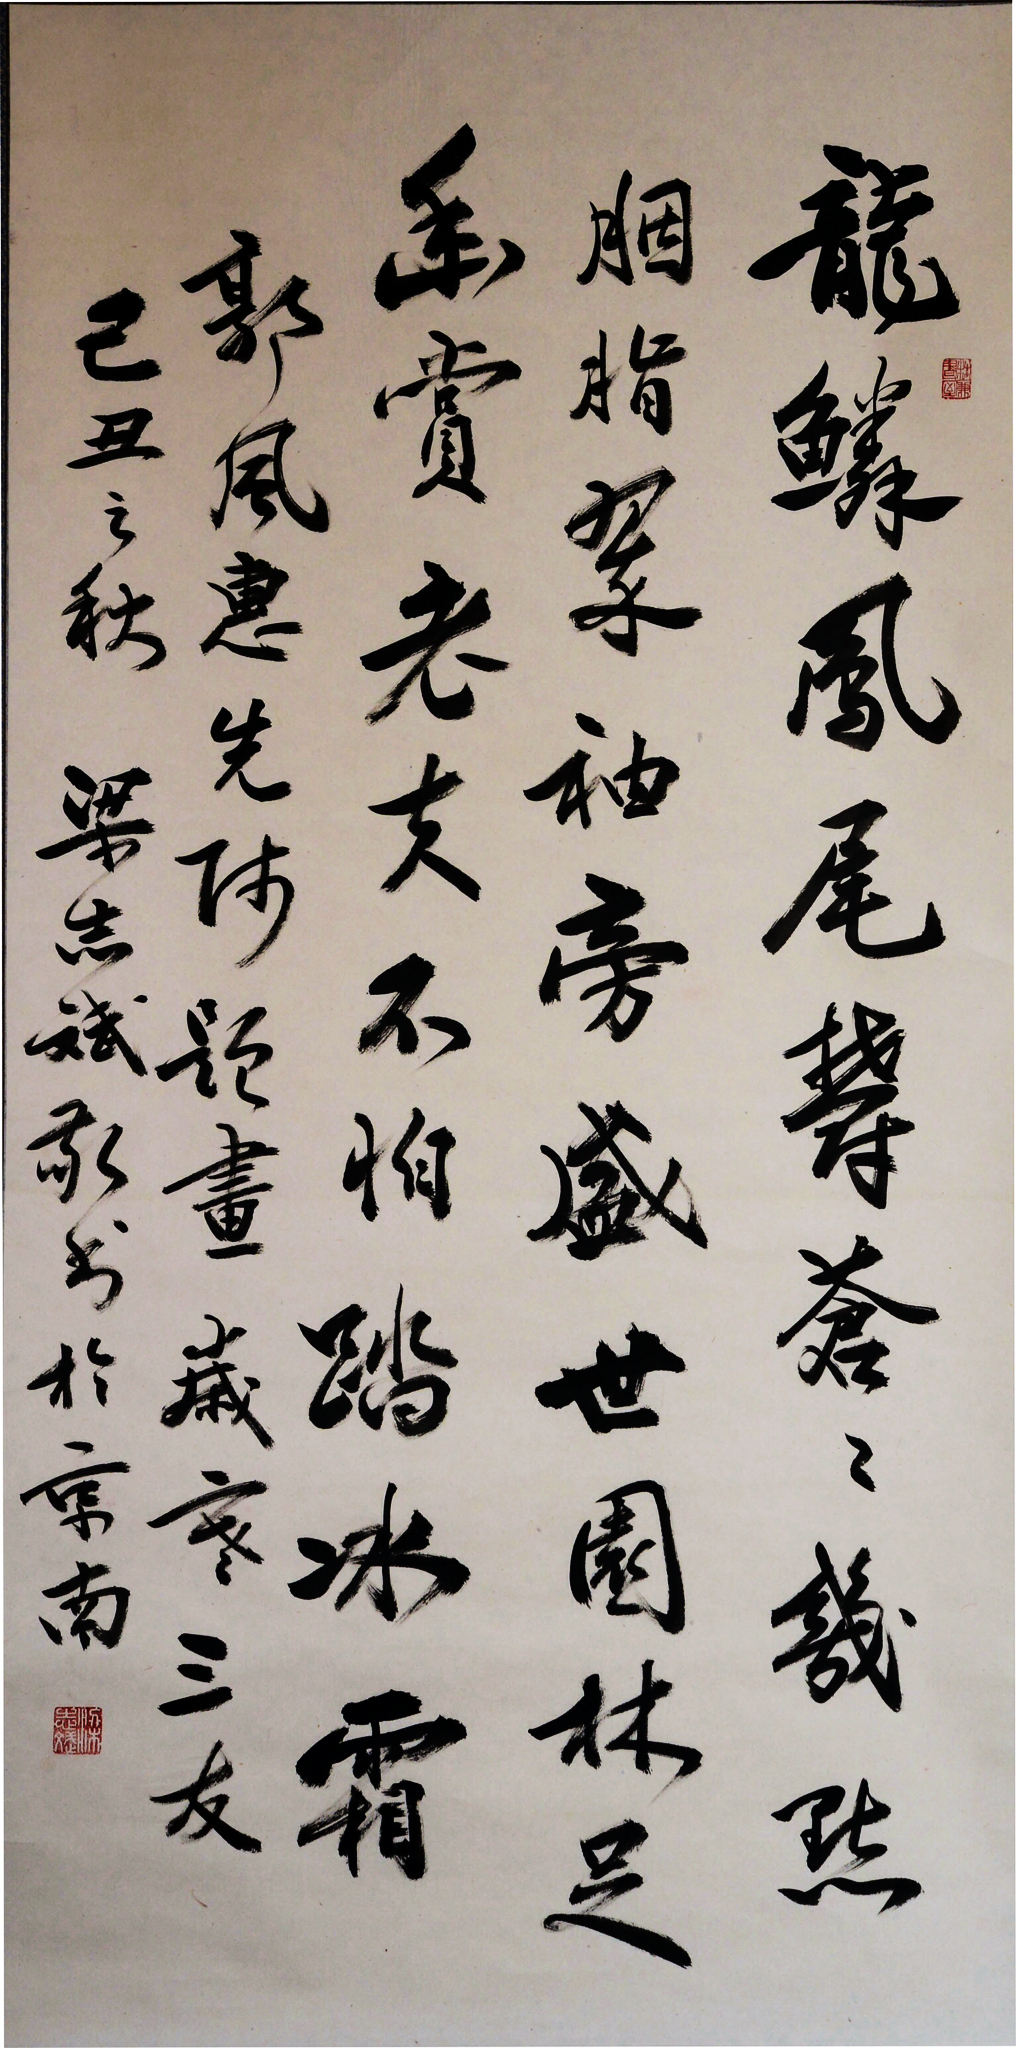 龍鱗鳳尾鬱蒼〻幾點
胭脂翠袖旁盛世園林足
幽賞老夫不怕踏冰霜
郭風惠先師題畫歲寒三友
己丑之秋 梁志斌敬书於京南